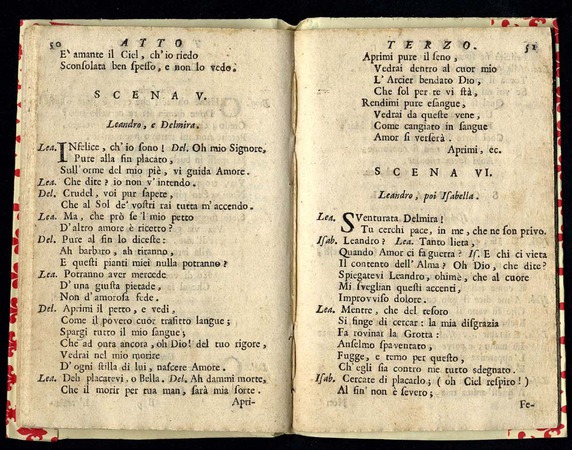 50 ATTO
E' amante il Ciel, ch'io riedo
Sconsolata ben spesso, e non lo vedo.
SCENA V.
Leandro, e Delmira.
Lea. INfelice, ch'io sono! Del. Oh mio Signore,
Pure alla fin placato,
Sull'orme del mio piè, vi guida Amore.
Lea. Che dite? io non v'intendo.
Del. Crudel, voi pur sapete,
Che al Sol de' vostri rai tutta m'accendo.
Lea. Ma, che prò se 'l mio petto
D'altro amore è ricetto?
Del. Pure al fin lo diceste:
Ah barbaro, ah tiranno,
E questi pianti miei nulla potranno?
Lea. Potranno aver mercede
D'una giusta pietade,
Non d'amorosa fede.
Del. Aprimi il petto, e vedi,
Come il povero cuor trafitto langue;
Spargi tutto il mio sangue,
Che ad onta ancora, oh Dio! del tuo rigore,
Vedrai nel mio morire
D'ogni stilla di lui, nascere Amore.
Lea. Deh placatevi, o Bella. Del. Ah dammi morte,
Che il morir per tua man, sarà mia sorte.
Apri-
TERZO. 51
Aprimi pure il seno,
Vedrai dentro al cuor mio
L'Arcier bendato Dio,
Che sol per te vi stà,
Rendimi pure esangue,
Vedrai da queste vene,
Come cangiato in sangue
Amor si verserà.
Aprimi, ec.
SCENA VI.
Leandro, poi Isabella.
Lea. SVenturata Delmira!
Tu cerchi pace, in me, che ne son privo.
Isab. Leandro? Lea. Tanto lieta,
Quando Amor ci fa guerra? Is. E chi ci vieta
Il contento dell'Alma? Oh Dio, che dite?
Spiegatevi Leandro, ohimè, che al cuore
Mi sveglian questi accenti,
Improvviso dolore.
Lea. Mentre, che del tesoro
Si finge di cercar: la mia disgrazia
Fa rovinar la Grotta:
Anselmo spaventato,
Fugge, e temo per questo,
Ch'egli sia contro me tutto sdegnato.
Isab. Cercate di placarlo; (oh Ciel respiro!)
Al fin' non è severo;
Fe-